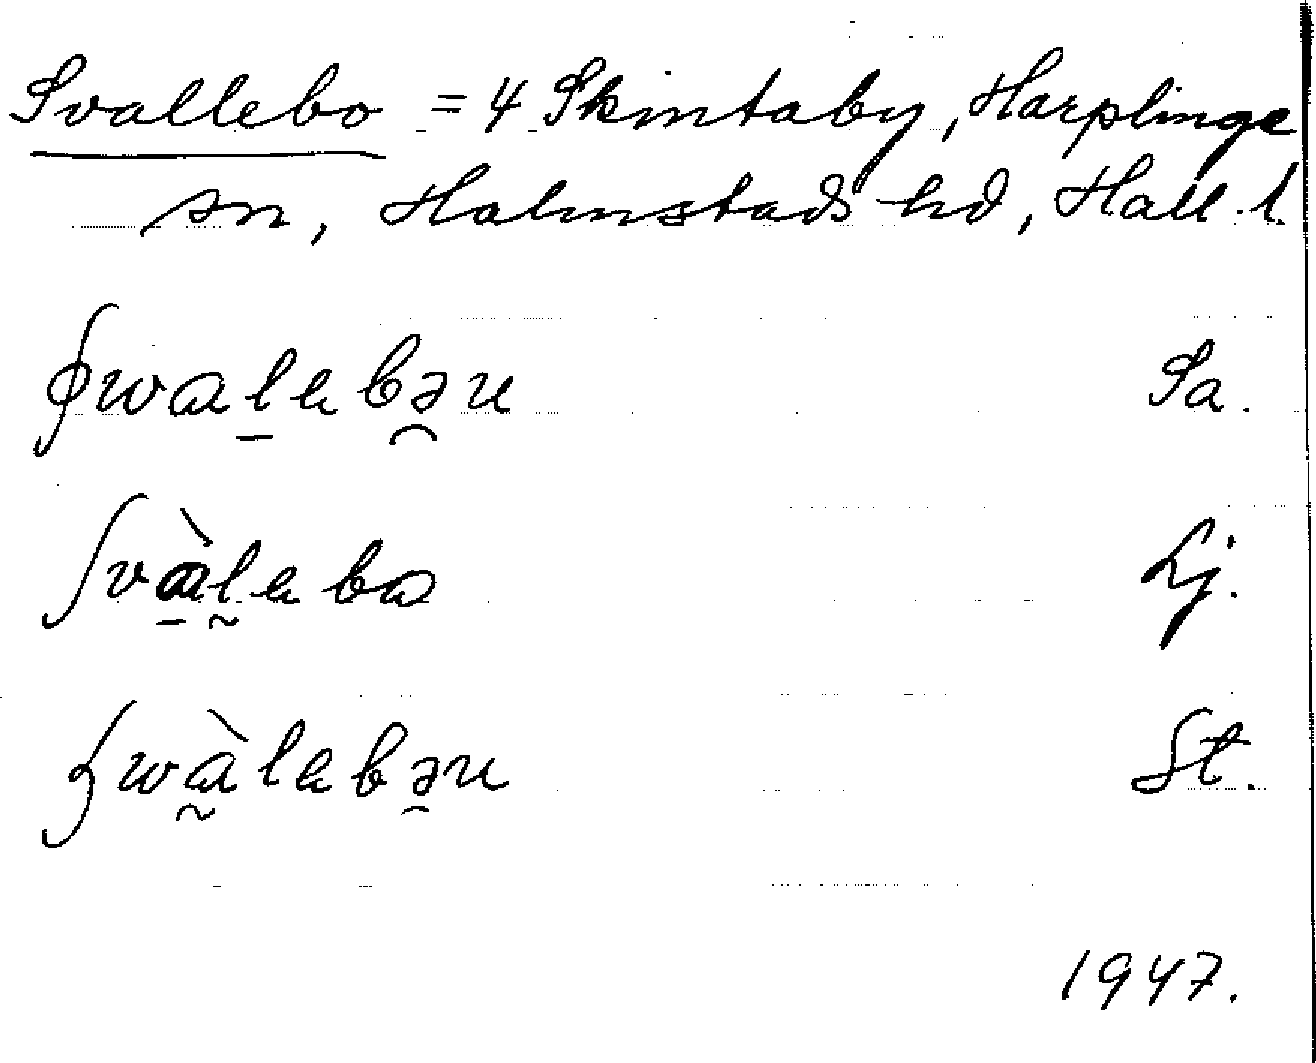 Svallebo = 4 Skintaby, Harplinge
sn, Halmstads hd, Hall. l.
ʃwalebəu Sa.
ʃvàlebɷ Lj.
ʃwàlebəu St.
1947.